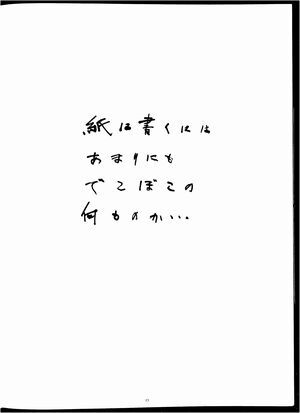 紙に書くには
あまりにも
でこぼこの
何ものか…